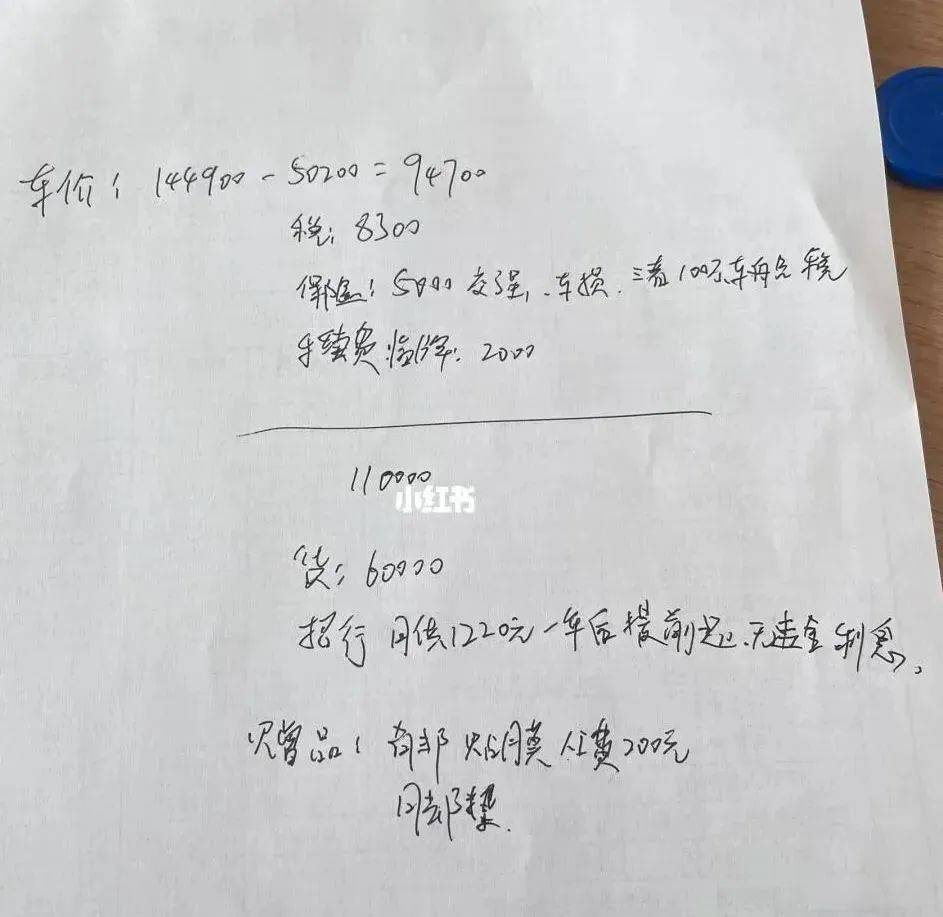 车价: 144900 - 50200 = 94700
税: 8300
保险: 5000 交强、车损、三者100万、车船税
手续费 临牌: 2000
110000
小红书
贷: 60000
招行 月供1220元 一年后提前还、无违金利息,
赠品: 贴膜 人工费200元